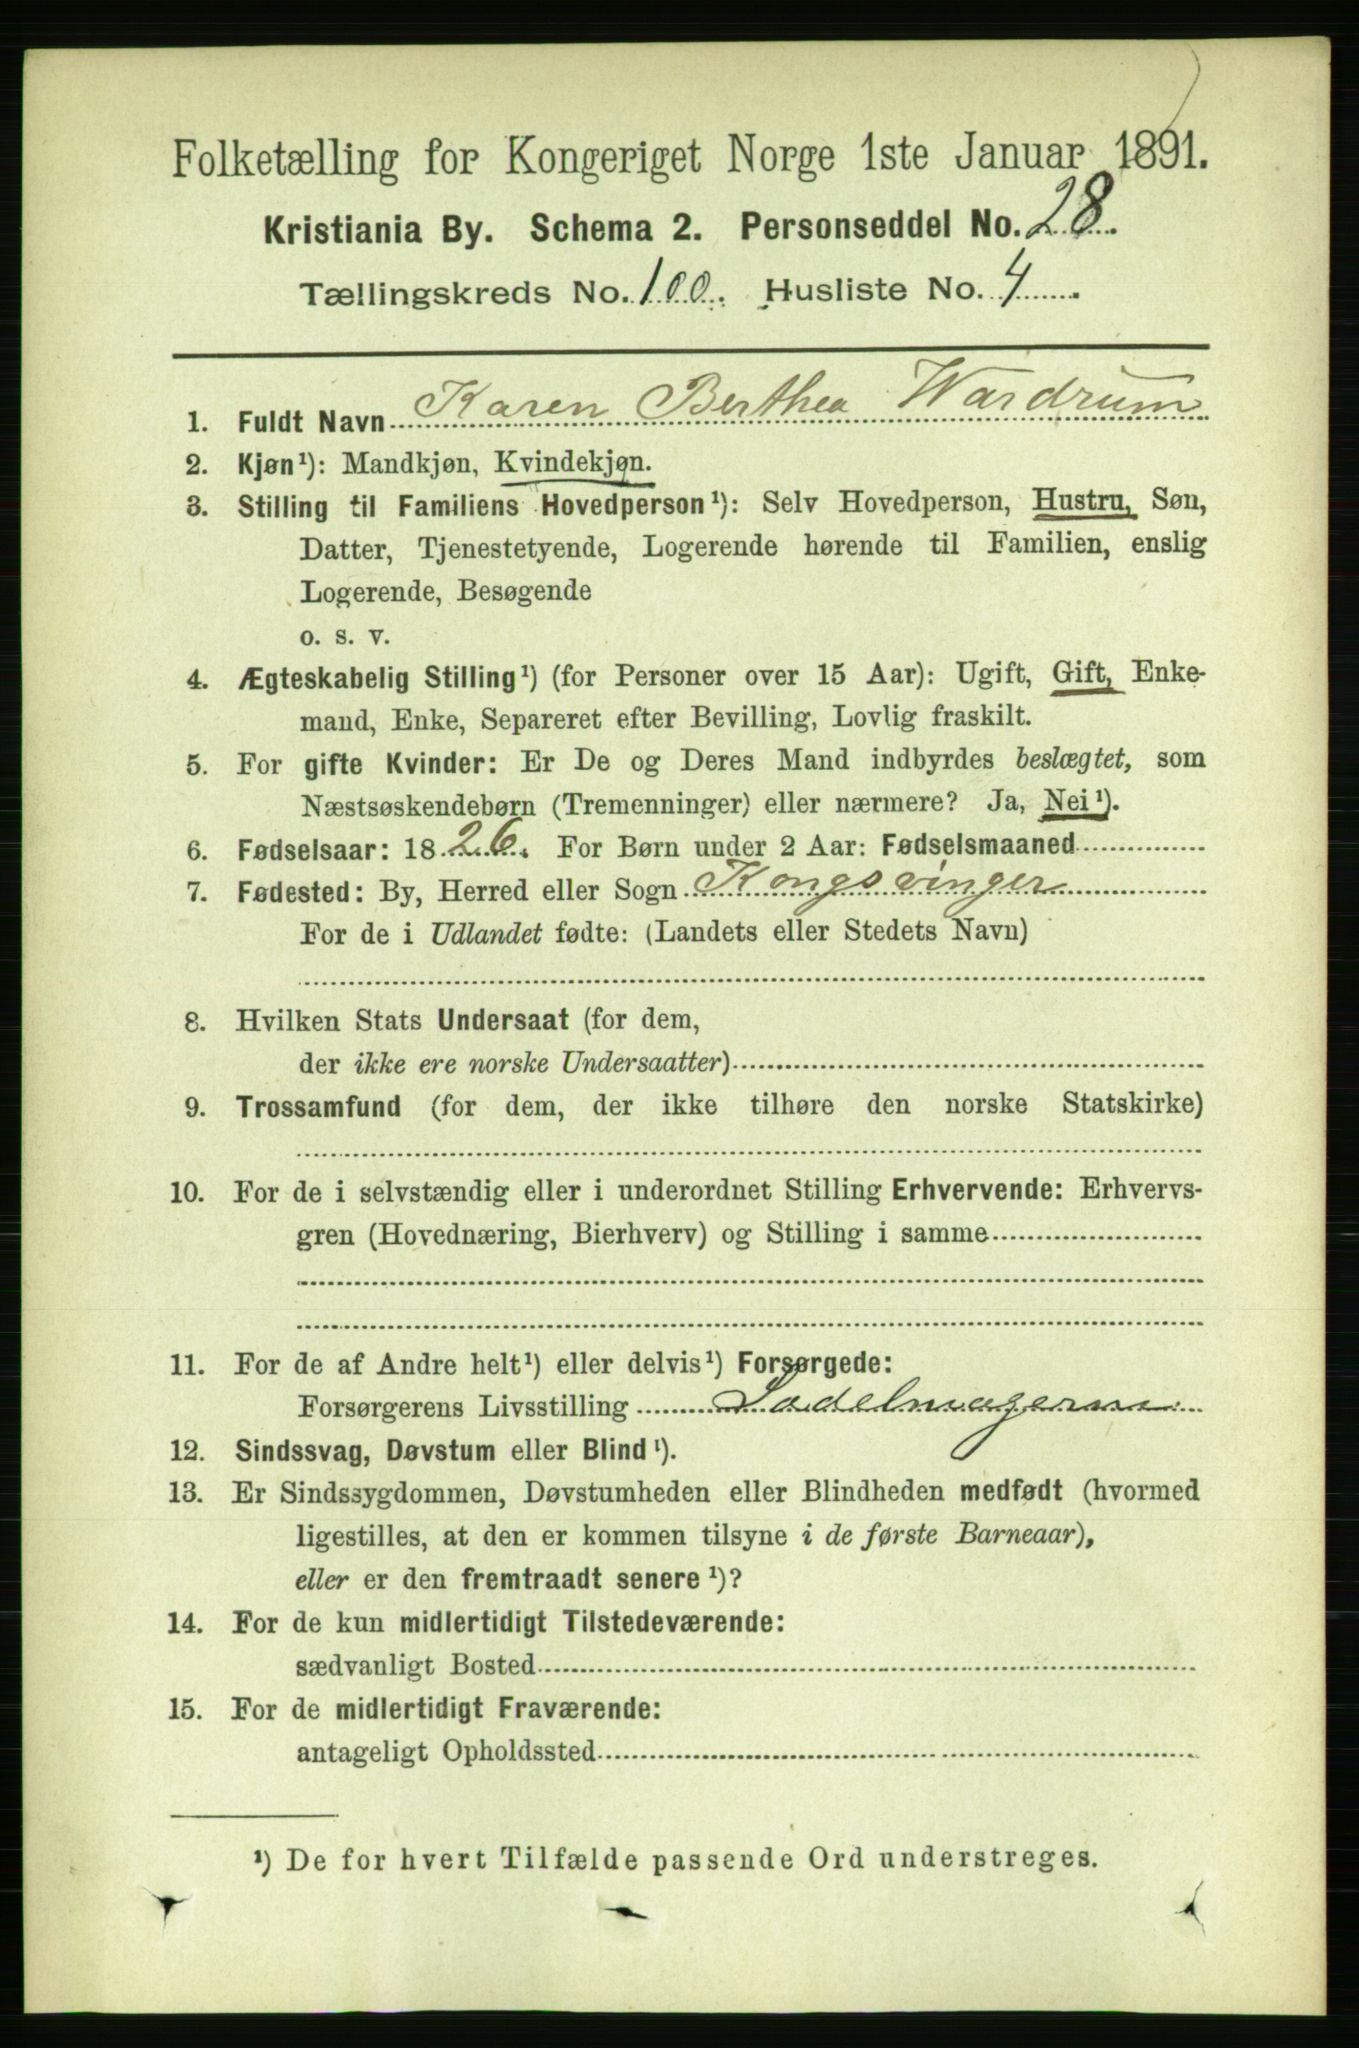 Folketælling for Kongeriget Norge 1ste Januar 1891.
Kristiania By. Schema 2. Personseddel No. 28.
Tællingskreds No. 100. Husliste No. 4
1. Fuldt Navn Karen Berthea Wardrum
2. Kjøn¹): Mandkjøn, Kvindekjøn.
3. Stilling til Familiens Hovedperson¹): Selv Hovedperson, Hustru, Søn,
Datter, Tjenestetyende, Logerende hørende til Familien, enslig
Logerende, Besøgende
o. s. v.
4. Ægteskabelig Stilling¹) (for Personer over 15 Aar): Ugift, Gift, Enke-
mand, Enke, Separeret efter Bevilling, Lovlig fraskilt.
5. For gifte Kvinder: Er De og Deres Mand indbyrdes beslægtet, som
Næstsøskendebørn (Tremenninger) eller nærmere? Ja, Nei¹).
6. Fødselsaar: 1826. For Børn under 2 Aar: Fødselsmaaned
7. Fødested: By, Herred eller Sogn Kongsvinger
For de i Udlandet fødte: (Landets eller Stedets Navn)
8. Hvilken Stats Undersaat (for dem,
der ikke ere norske Undersaatter)
9. Trossamfund (for dem, der ikke tilhøre den norske Statskirke)
10. For de i selvstændig eller i underordnet Stilling Erhvervende: Erhvervs-
gren (Hovednæring, Bierhverv) og Stilling i samme
11. For de af Andre helt¹) eller delvis¹) Forsørgede:
Forsørgerens Livsstilling
12. Sindssvag, Døvstum eller Blind¹).
13. Er Sindssygdommen, Døvstumheden eller Blindheden medfødt (hvormed
ligestilles, at den er kommen tilsyne i de første Barneaar),
eller er den fremtraadt senere¹)?
14. For de kun midlertidigt Tilstedeværende:
sædvanligt Bosted
15. For de midlertidigt Fraværende:
antageligt Opholdssted
¹) De for hvert Tilfælde passende Ord understreges.